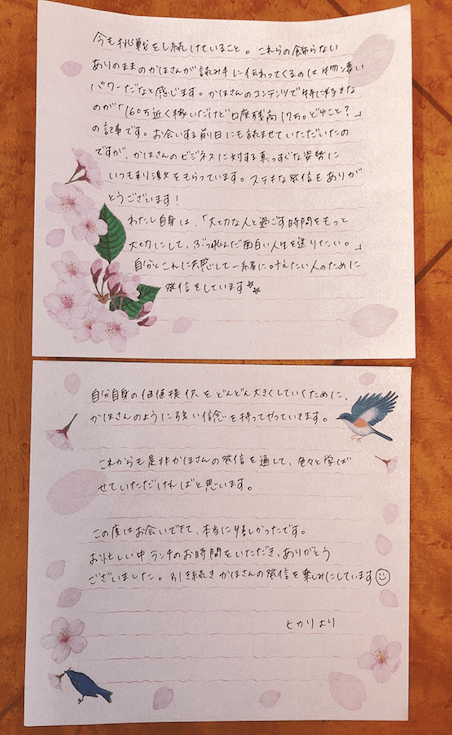 今も挑戦をし続けていること。これらの飾らない
ありのままのかほさんが読み手に伝わってくるのは物凄い
パワーだなと感じます。かほさんのコンテンツで特に好きな
のが「160万近く稼いだけど口座残高17万。どゆこと？」
の記事です。お会いする前日にも読ませていただいたの
ですが、かほさんのビジネスに対する真っすぐな姿勢に
いつも刺激をもらっています。ステキな発信をありが
とうございます！
わたし自身は、「大切な人と過ごす時間をもっと
大切にして、ぶっ飛んだ面白い人生を送りたい。」
自分とこれに共感して一緒に叶えたい人のために
発信をしています
自分自身の価値提供をどんどん大きくしていくために、
かほさんのように強い信念を持ってやっていきます。
これからも是非かほさんの発信を通して、色々と学ば
せていただければと思います。
この度はお会いできて、本当に嬉しかったです。
お忙しい中ランチのお時間をいただき、ありがとう
ございました。引き続きかほさんの発信を楽しみにしています
ヒカリより